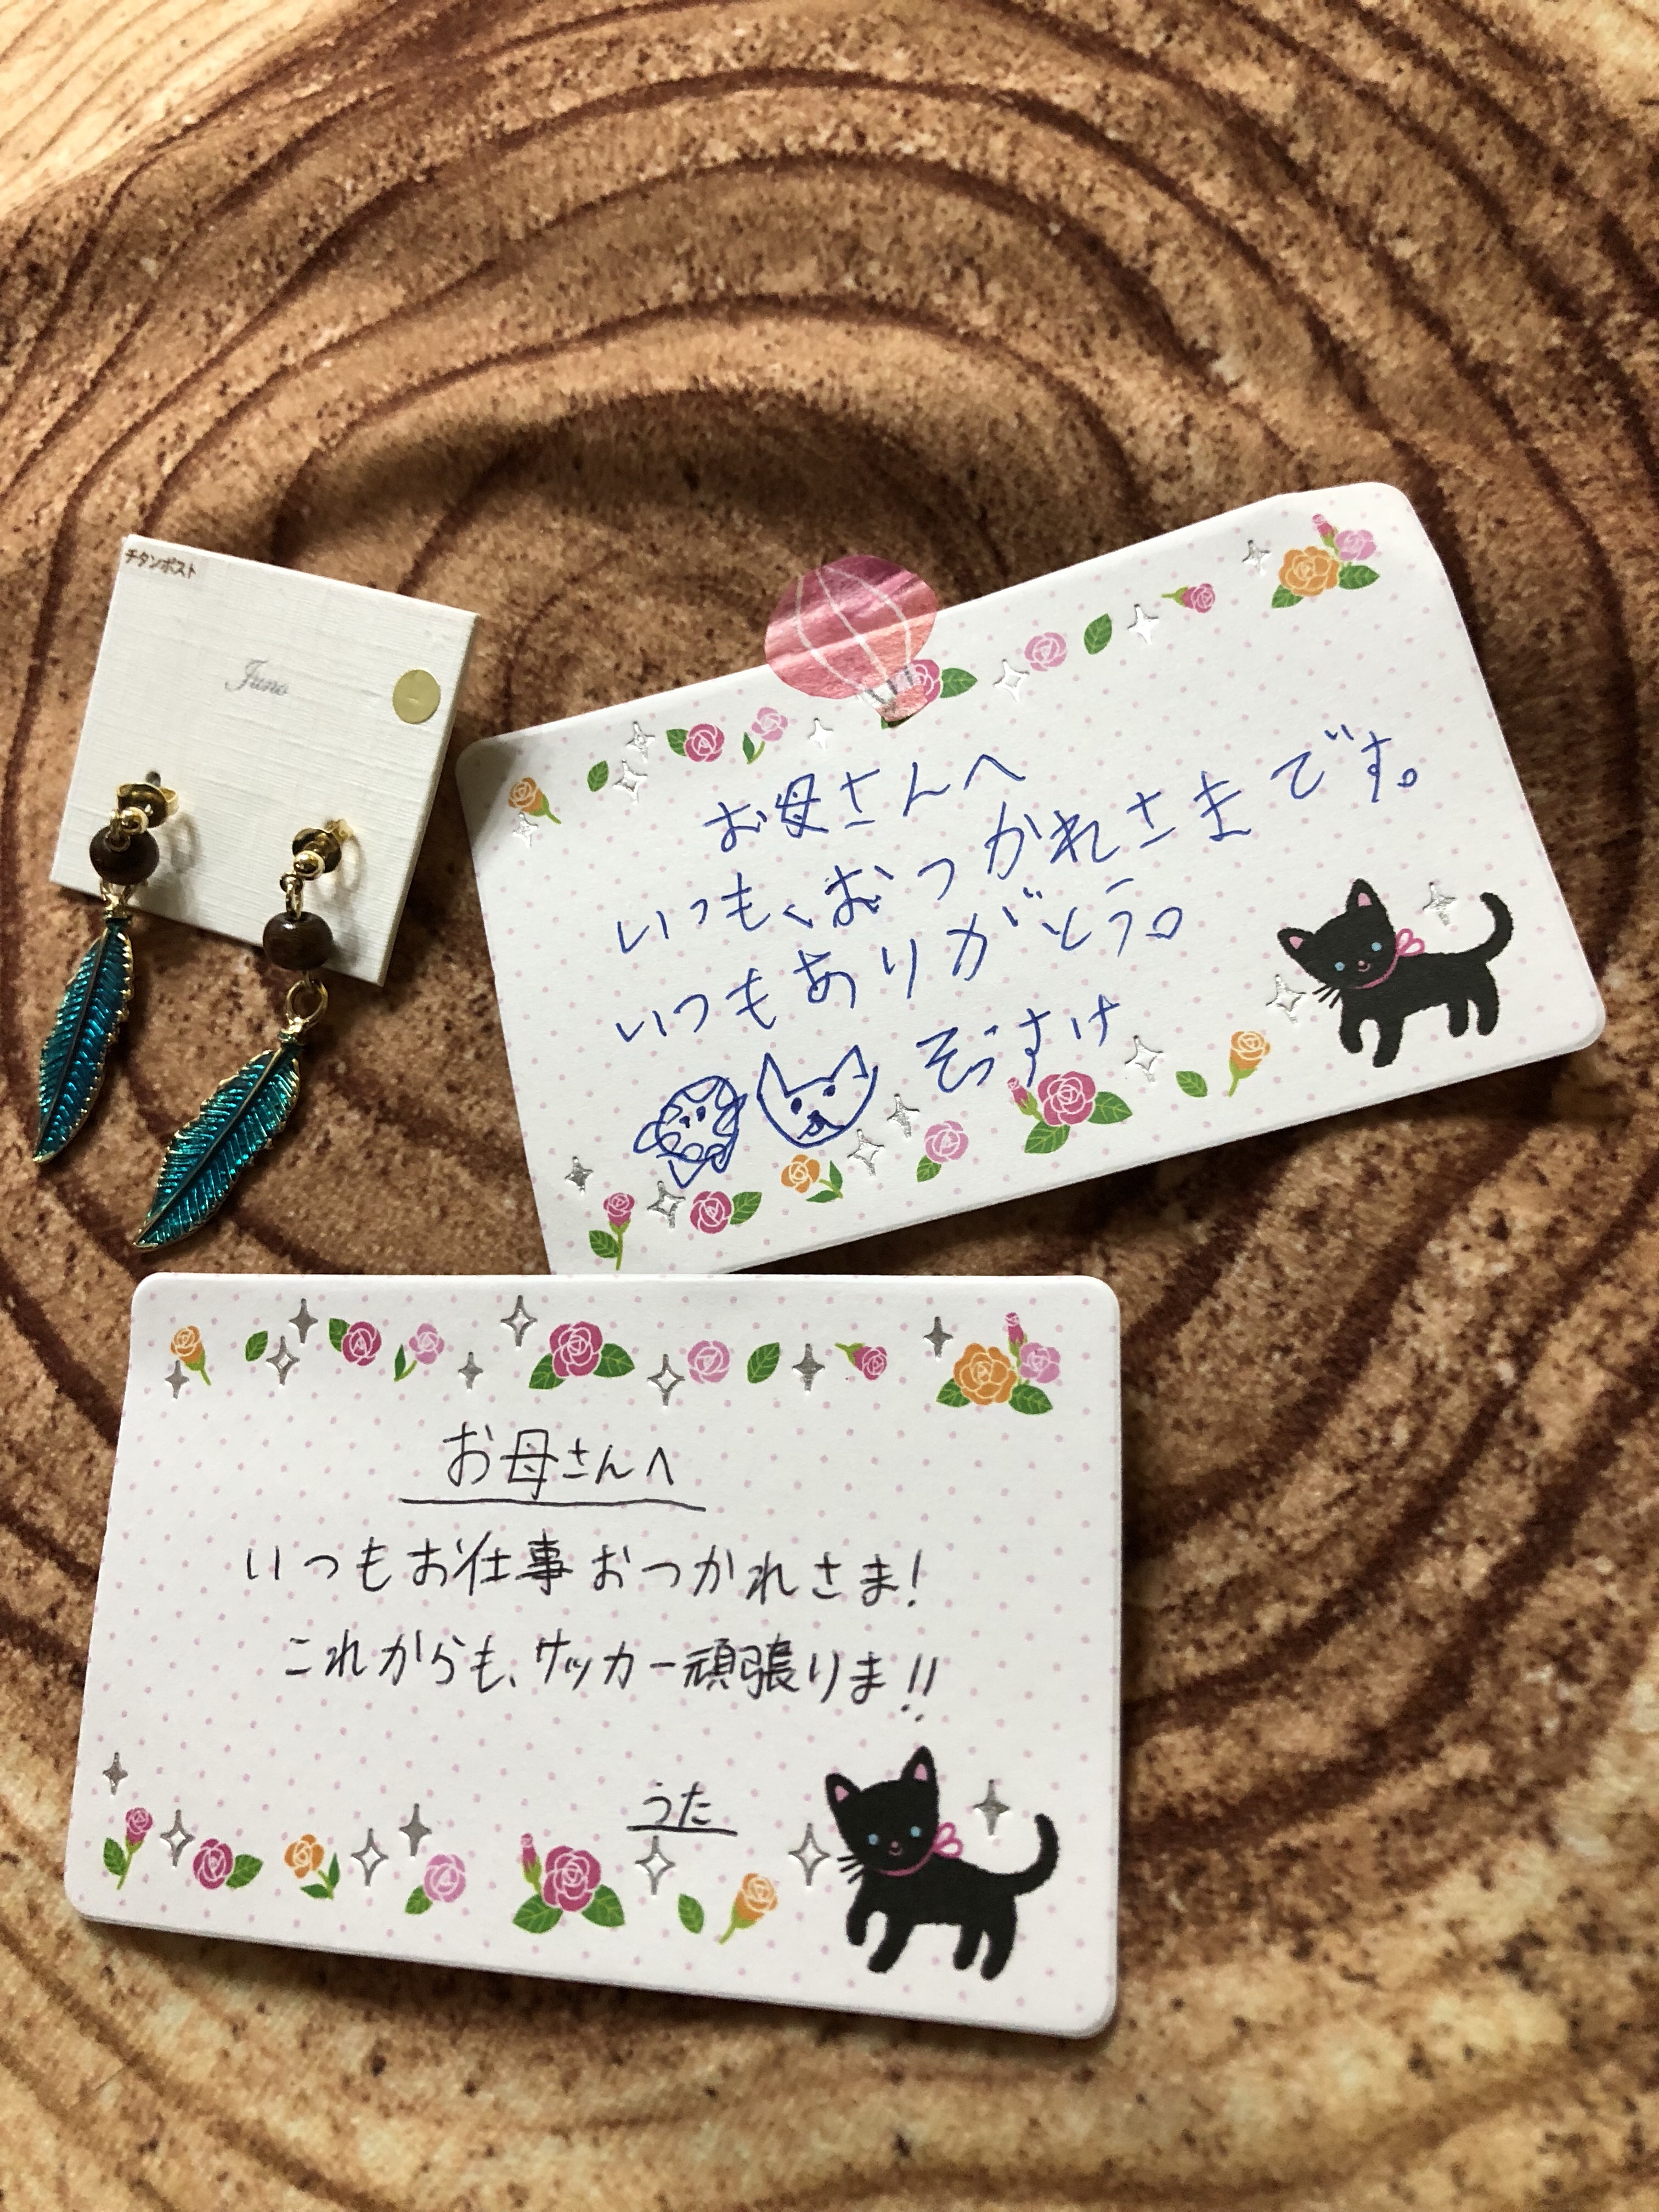 チタンポスト
Juno
お母さんへ
いつも、おつかれさまです。
いつもありがとう。
そうすけ
お母さんへ
いつもお仕事おつかれさま!
これからも、サッカー頑張りま!!
うた